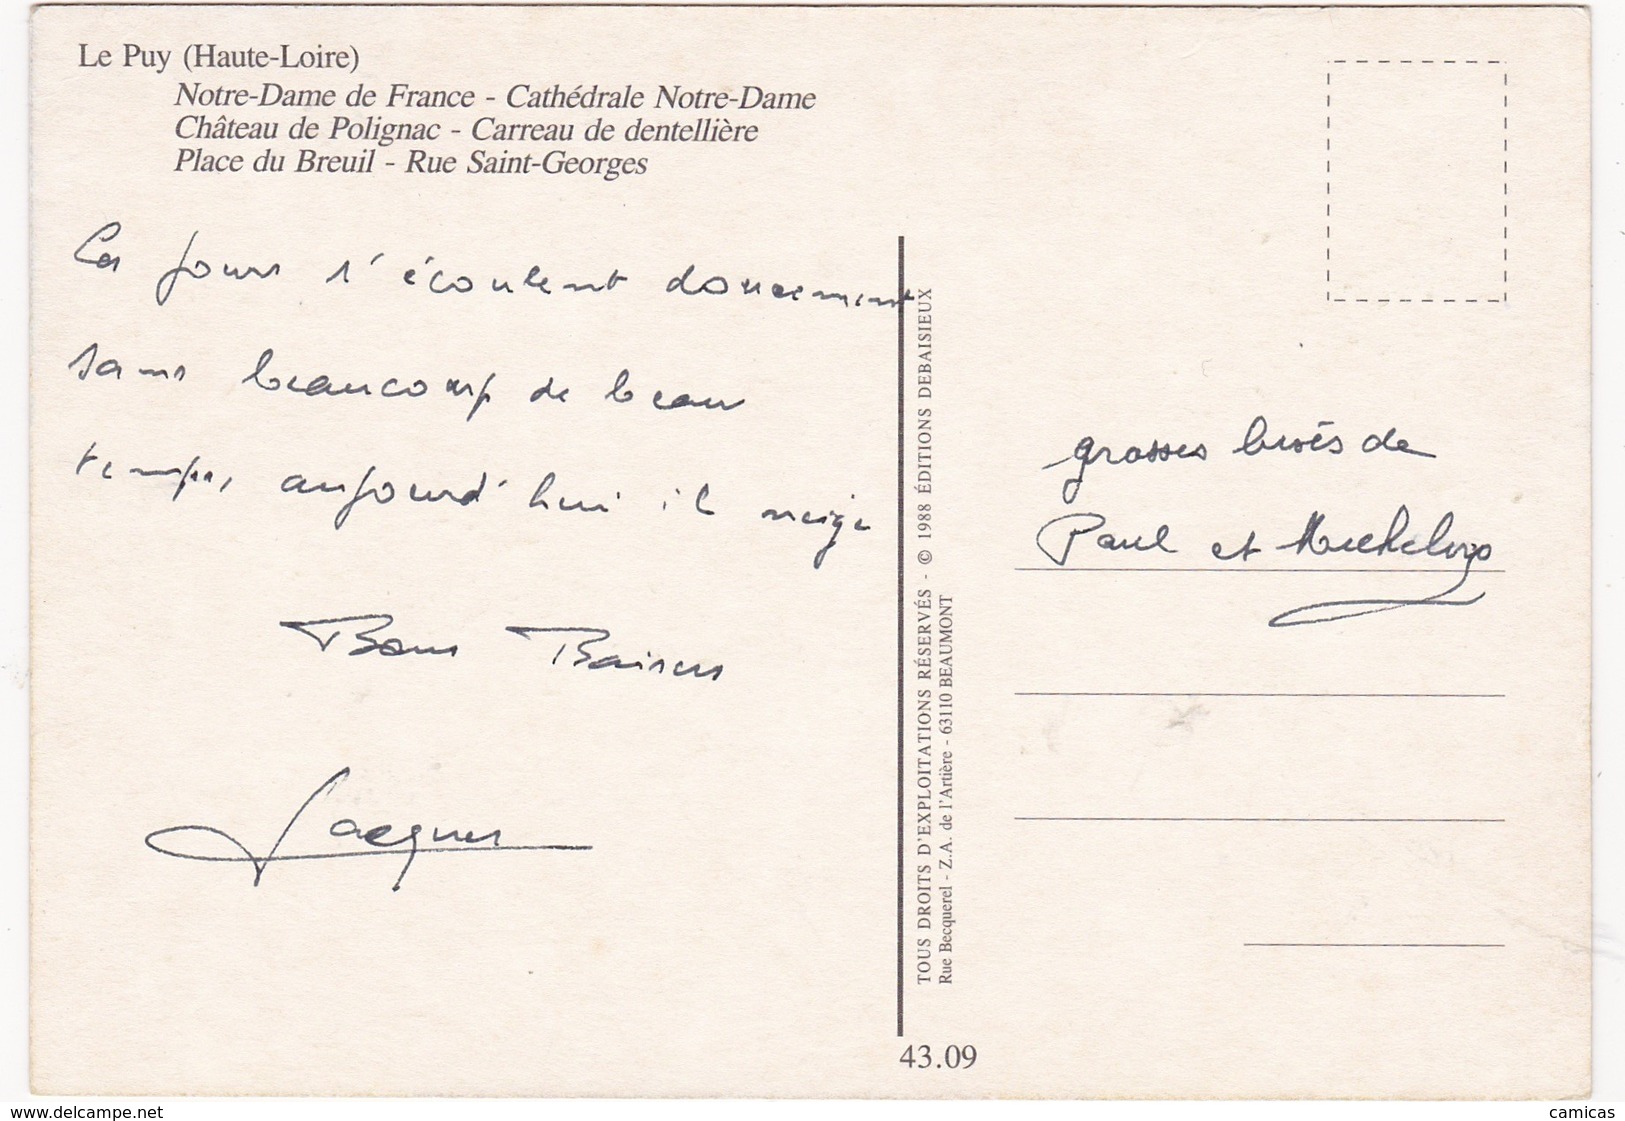 Le Puy (Haute-Loire)
Notre-Dame de France - Cathédrale Notre-Dame
Château de Polignac - Carreau de dentellière
Place du Breuil - Rue Saint-Georges
Les jours s'écoulent doucement
sans beaucoup de beau
temps, aujourd'hui il neige
Bons Baisers
Jacques
TOUS DROITS D'EXPLOITATIONS RÉSERVÉS - © 1988 ÉDITIONS DEBAISIEUX
Rue Becquerel - Z.A. de l'Artière - 63110 BEAUMONT
43.09
grosses bises de
Paul et
www.delcampe.net
camicas